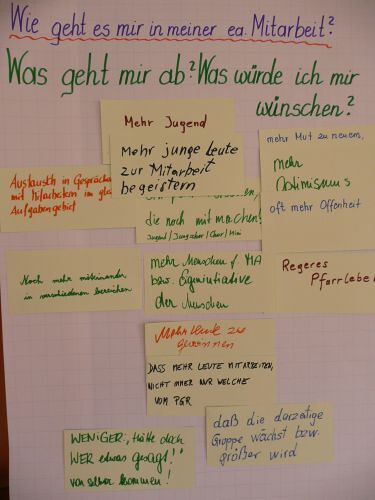 Wie geht es mir in meiner ea. Mitarbeit?
Was geht mir ab? Was würde ich mir
wünschen?
Mehr Jugend
Mehr junge Leute
zur Mitarbeit
begeistern
mehr Mut zu neuem,
mehr
Optimismus
oft mehr Offenheit
Austausch in Gespräche
mit Mitarbeitern im gle
Aufgabengebiet
die noch mit machen!
Jugend/Jungschar/Chor/Mini
Noch mehr miteinander
in verschiedenen bereichen
mehr Menschen f. MA
bzw. Eigeninitiative
der Menschen
Regeres
Pfarrlebe
Mehr Leute zu
gewinnen
DASS MEHR LEUTE MITARBEITEN,
NICHT IMMER NUR WELCHE
VOM PGR
daß die derzeitige
Gruppe wächst bzw.
größer wird
WENIGER: „Hätte doch
WER etwas gesagt!"
von selber kommen!